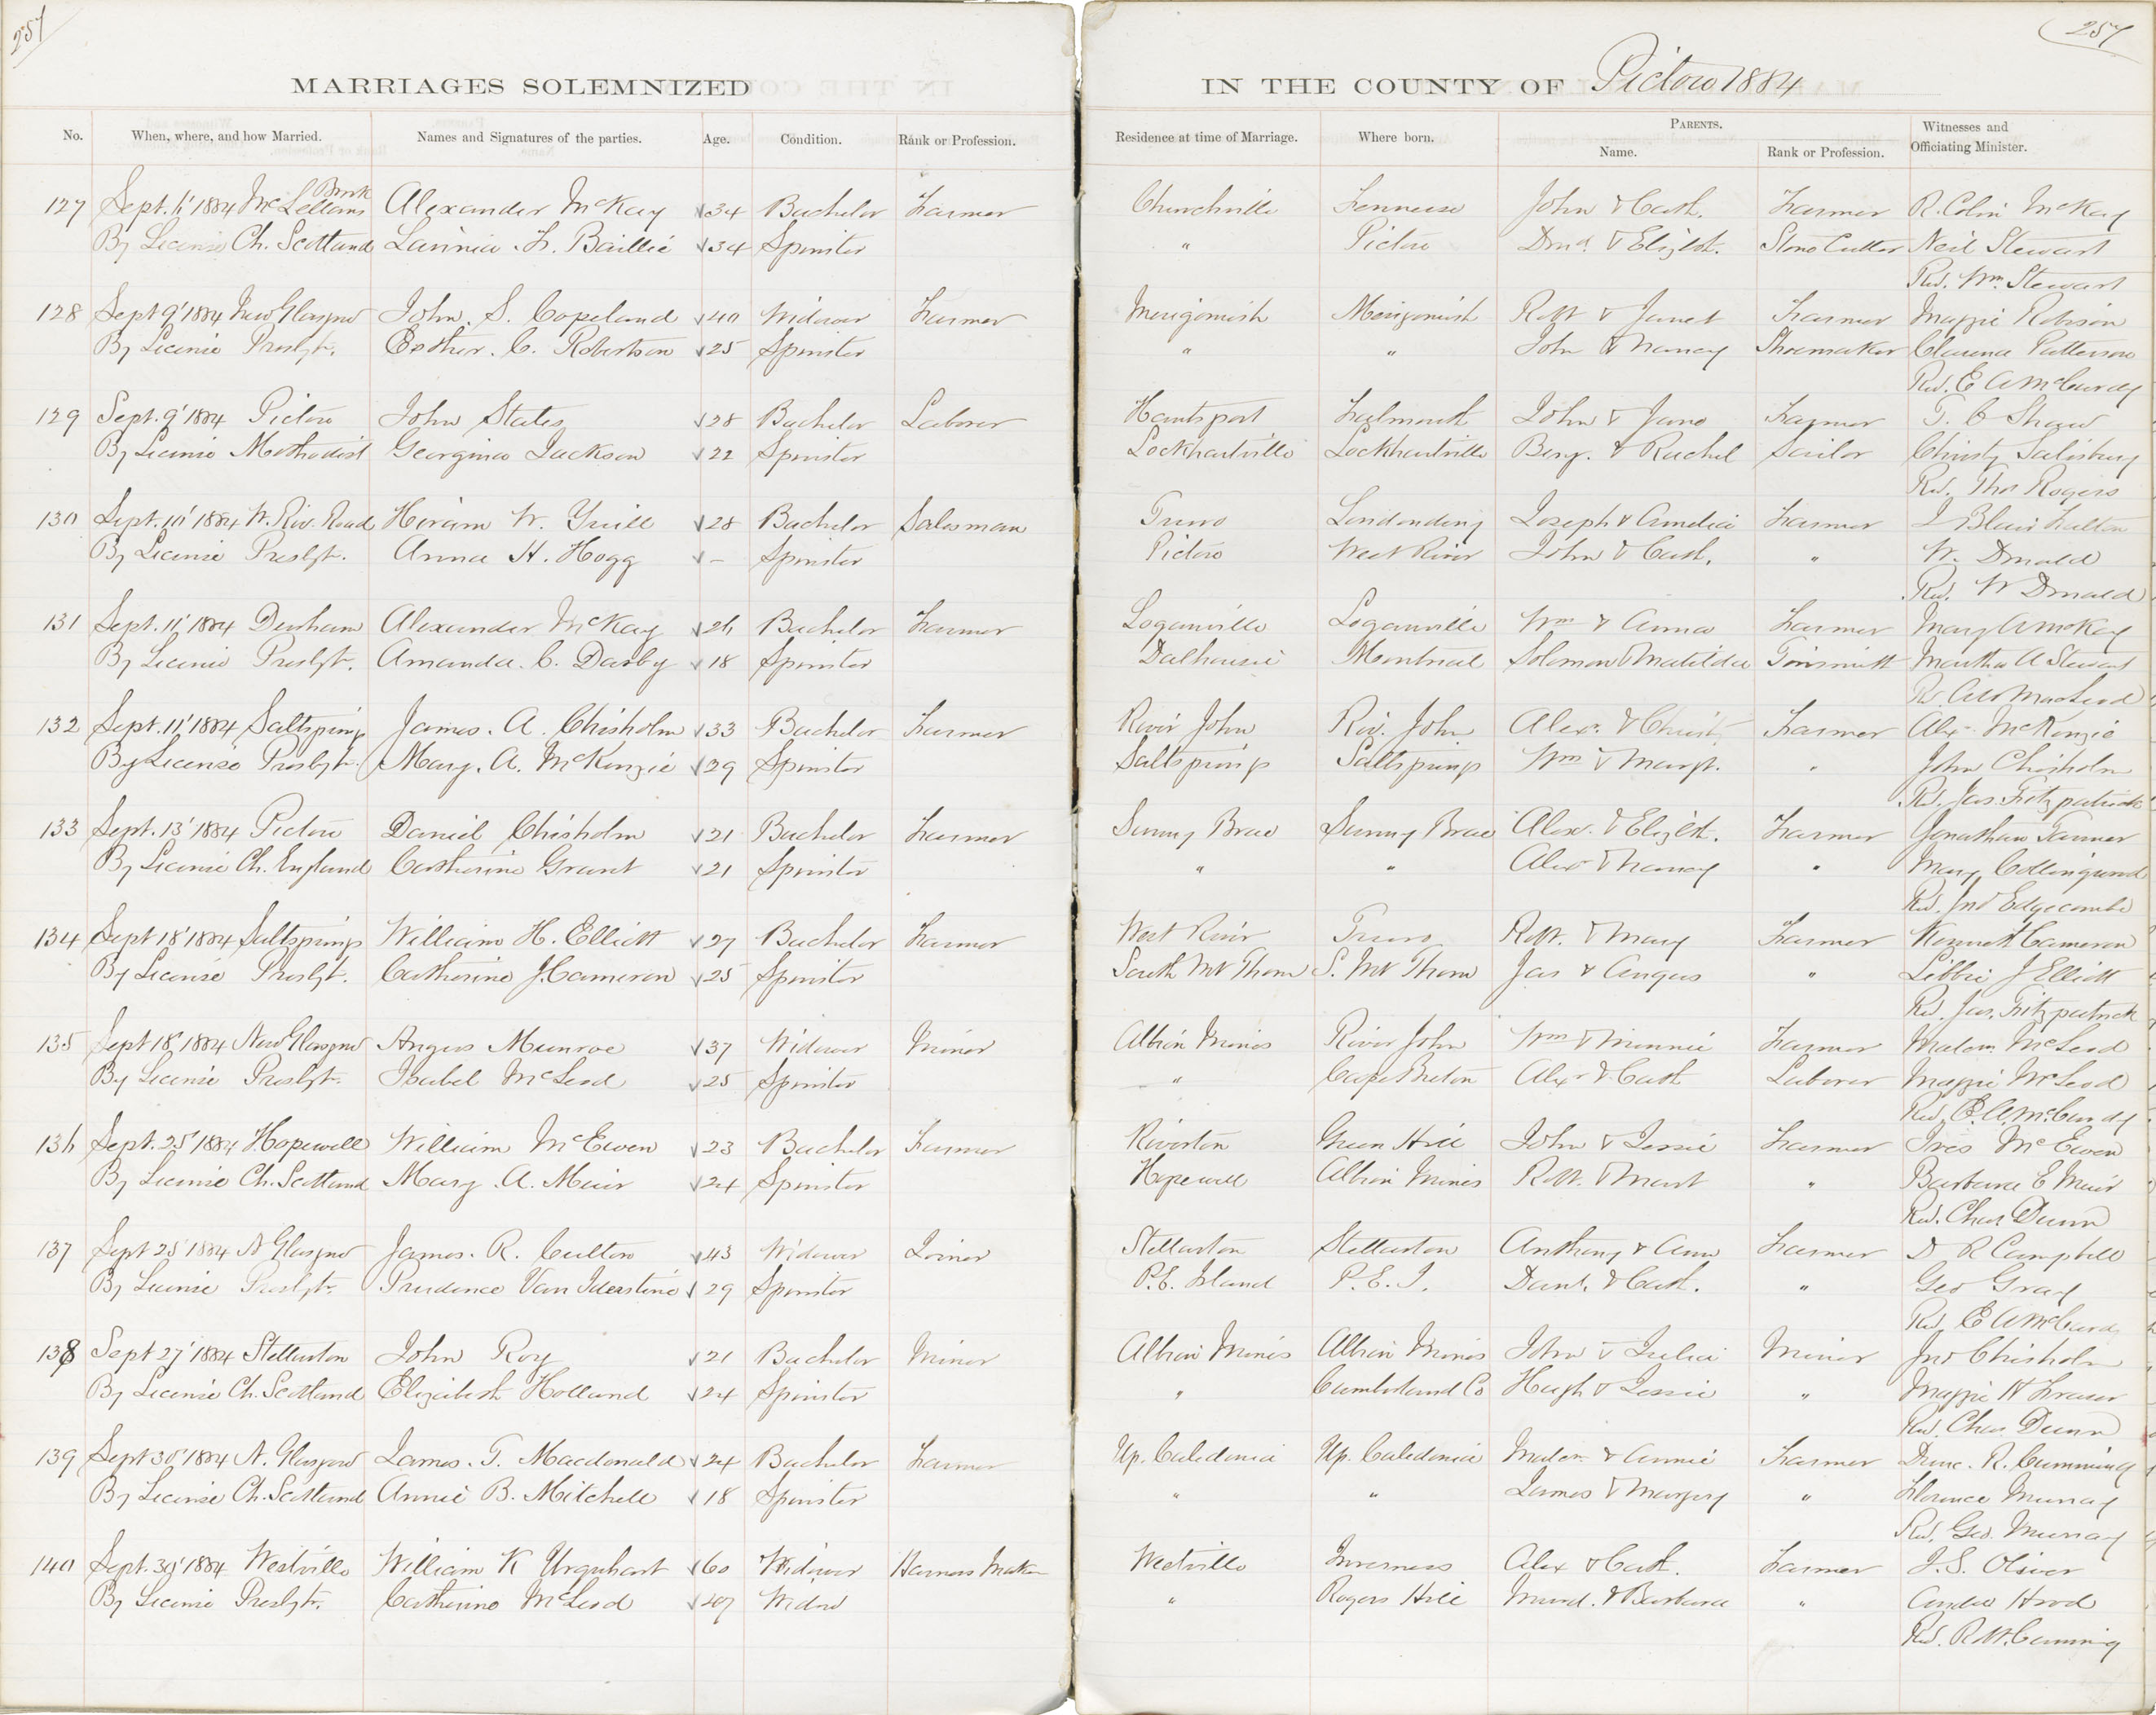 257
257
MARRIAGES SOLEMNIZED
IN THE COUNTY OF Pictou 1884
No. When, where, and how Married. Names and Signatures of the parties. Age. Condition. Rank or Profession. Residence at time of Marriage. Where born. PARENTS. Name. Rank or Profession. Witnesses and Officiating Minister.
127 Sept. 1' 1884 McLellans Brook Alexander McKay 34 Bachelor Farmer Churchville John & Cath. Farmer R. Colin McKay
By License Ch. Scotland Lavinia F. Baillie 34 Spinster " Pictou Dond. & Elizbt. Stone Cutter Neil Stewart
Rev. Wm. Stewart
128 Sept 9' 1884 New Glasgow John. S. Copeland 40 Widower Farmer Merigomish Merigomish Robt & Janet Farmer Maggie Robison
By License Presbyt. Esther. C. Robertson 25 Spinster " " John & Nancy Shoemaker Clarence Patterson
Rev. E A McCurdy
129 Sept. 9' 1884 Pictou John States 28 Bachelor Laborer Hantsport Falmouth John & Jane Farmer T. C Shaw
By License Methodist Georgina Jackson 22 Spinster Lockhartville Lockhartville Benj. & Rachel Sailor Christy Salisbury
Rev. Thos Rogers
130 Sept. 10' 1884 W. Riv. Road Hiram W. Yuill 28 Bachelor Salesman Truro Londonderry Joseph & Amelia Farmer J Blair Fulton
By License Presbyt. Anna H. Hogg - Spinster Pictou West River John & Cath. " W. Donald
Rev. W Donald
131 Sept. 11' 1884 Durham Alexander McKay 26 Bachelor Farmer Loganville Loganville Wm & Anna Farmer Mary A McKay
By License Presbyt. Amanda. C. Darby 18 Spinster Dalhousie Montreal Solomon & Matilda Tinsmith Martha A Stewart
Rv. A W MacLeod
132 Sept. 11' 1884 Saltsprings James. A. Chisholm 33 Bachelor Farmer River John Riv. John Alex. & Christ. Farmer Alex McKenzie
By License Presbyt. Mary. A. McKenzie 29 Spinster Saltsprings Saltsprings Wm & Margt. " John Chisholm
Rev. Jas. Fitzpatrick
133 Sept. 13' 1884 Pictou Daniel Chisholm 21 Bachelor Farmer Sunny Brae Sunny Brae Alex. & Elizbt. Farmer Jonathan Tanner
By License Ch. England Catherine Grant 21 Spinster " " Alex & Nancy " Mary Collingwood
Rev. Jno Edgecombe
134 Sept 18' 1884 Saltsprings William H. Elliott 27 Bachelor Farmer West River Truro Robt. & Mary Farmer Kenneth Cameron
By License Presbyt. Catherine J. Cameron 25 Spinster South Mt Thom S. Mt Thom Jas & Angus " Libbie J Elliott
Rev. Jas. Fitzpatrick
135 Sept 18' 1884 New Glasgow Angus Munroe 37 Widower Miner Albion Mines River John Wm & Minnie Farmer Malcm. McLeod
By License Presbyt. Isabel McLeod 25 Spinster " Cape Breton Alex & Cath Laborer Maggie McLeod
Rev. E. A. McCurdy
136 Sept. 25' 1884 Hopewell William McEwen 23 Bachelor Farmer Riverton Green Hill John & Jessie Farmer McEwen
By License Ch. Scotland Mary. A. Muir 24 Spinster Hopewell Albion Mines Robt. & Mart " Barbara E Muir
Rev. Chas Dunn
137 Sept 25' 1884 N Glasgow James. R. Culton 43 Widower Joiner Stellarton Stellarton Anthony & Ann Farmer D R Campbell
By License Presbyt. Prudence Van Iderstine 29 Spinster P.E. Island P.E.I. Danl. & Cath. " Geo Gray
Rev. E A McCurdy
138 Sept 27' 1884 Stellarton John Roy 21 Bachelor Miner Albion Mines Albion Mines John & Julia Miner Jno Chisholm
By License Ch. Scotland Elizabeth Holland 24 Spinster " Cumberland Co Hugh & Jessie " Maggie H Fraser
Rev. Chas Dunn
139 Sept 30' 1884 N. Glasgow James. T. Macdonald 24 Bachelor Farmer Up. Caledonia Up. Caledonia Malcm & Annie Farmer Dunc. R. Cumming
By License Ch. Scotland Annie B. Mitchell 18 Spinster " " James & Margery " Florence Murray
Rev. Geo. Murray
140 Sept. 30' 1884 Westville William K Urquhart 60 Widower Harness Maker Westville Inverness Alex & Cath. Farmer J. S. Oliver
By License Presbyt. Catherine McLeod 49 Widow " Rogers Hill Murd. & Barbara " Andw Hood
Rev. R W. Cumming